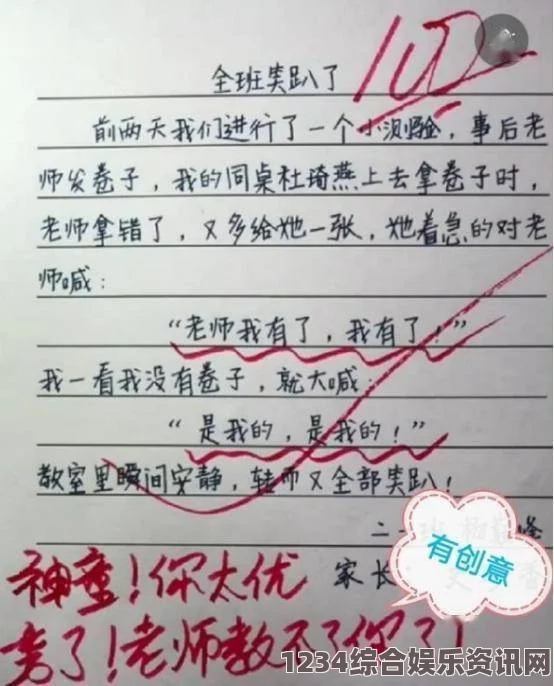 全班笑趴了
100
前两天我们进行了一个小测验，事后老
师发卷子，我的同桌杜琦燕上去拿卷子时，
老师拿错了，又多给她一张，她着急的对老
师喊：
“老师我有了，我有了！”
我一看我没有卷子，就大喊：
“是我的，是我的！”
教室里瞬间安静，转而又全部笑趴！
二
家长：
有创意
神童！你太优
秀了！老师教不了你了！
1234综合娱乐资讯网